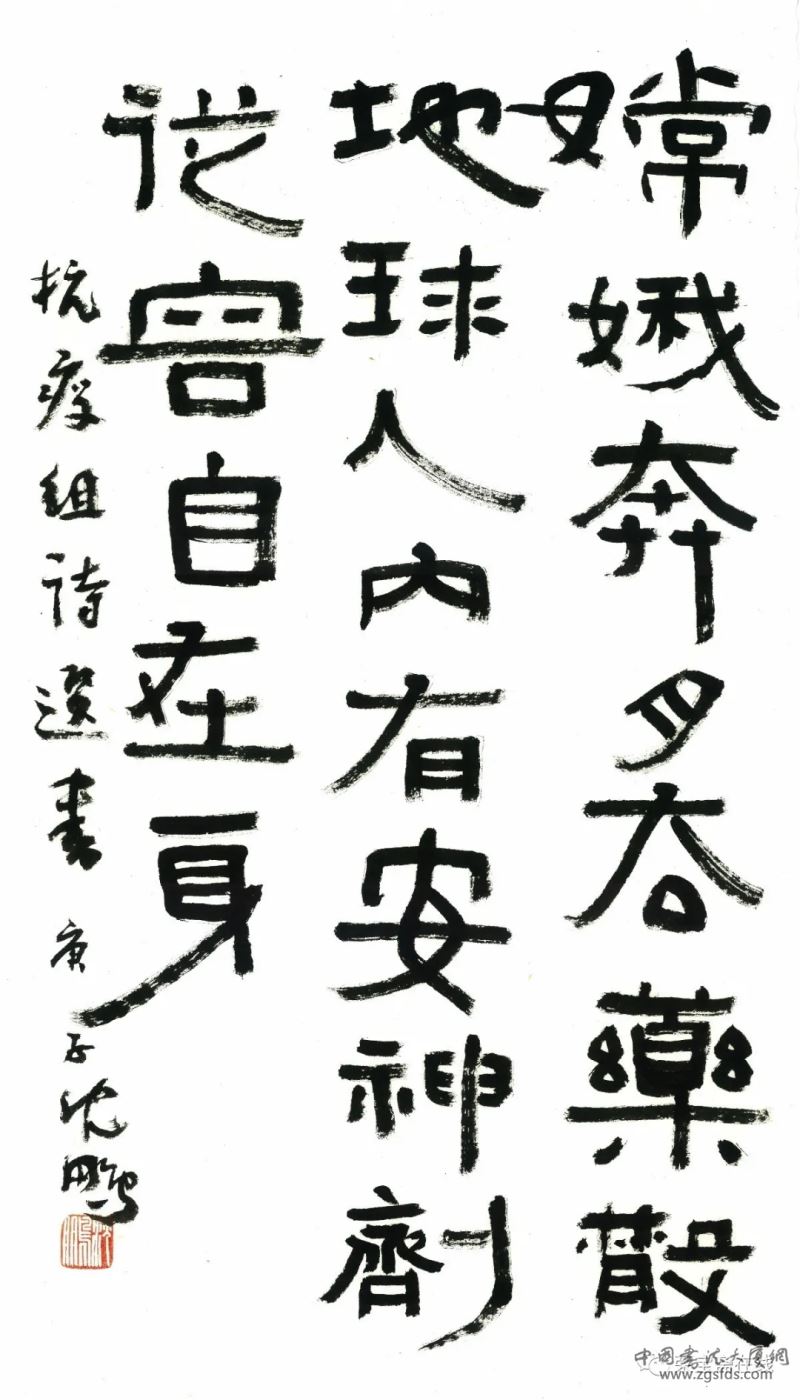 嫦娥奔月吞藥散
地球人內有安神劑
從容自在身
抗疫組詩選書 庚子沈鵬
沈鵬
中国書法大厦網
www.zgsfds.com